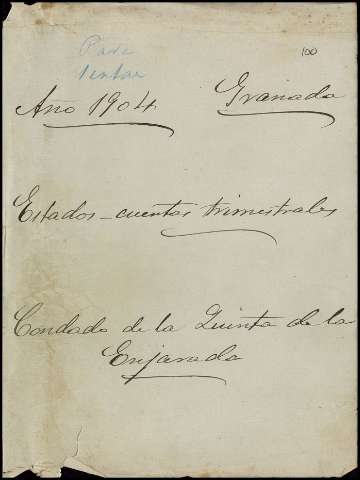 Para
100
Año 1904.
Granada
Estados-cuentas trimestrales
Condado de la Quinta de la
Enjarada